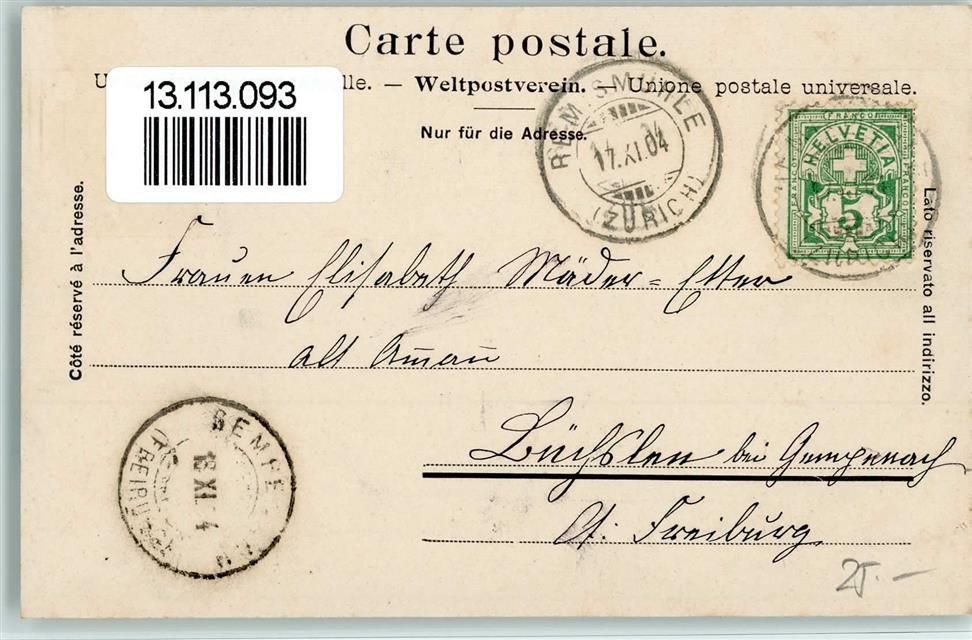 Carte postale.
U lle. — Weltpostverein. — Unione postale universale.
Nur für die Adresse.
13.113.093
Côté réservé à l'adresse.
Lato riservato all indirizzo.
REMISMÜHLE
17.XI.04
(ZÜRICH)
FRANCO
HELVETIA
FRANCO
FRANCO
5
Frauen Elisabeth Mäder=Etter
alt
Büchslen bei Gempenach
Ct. Freiburg
GEMPE
18 XI 4
(FREIBU
25.—